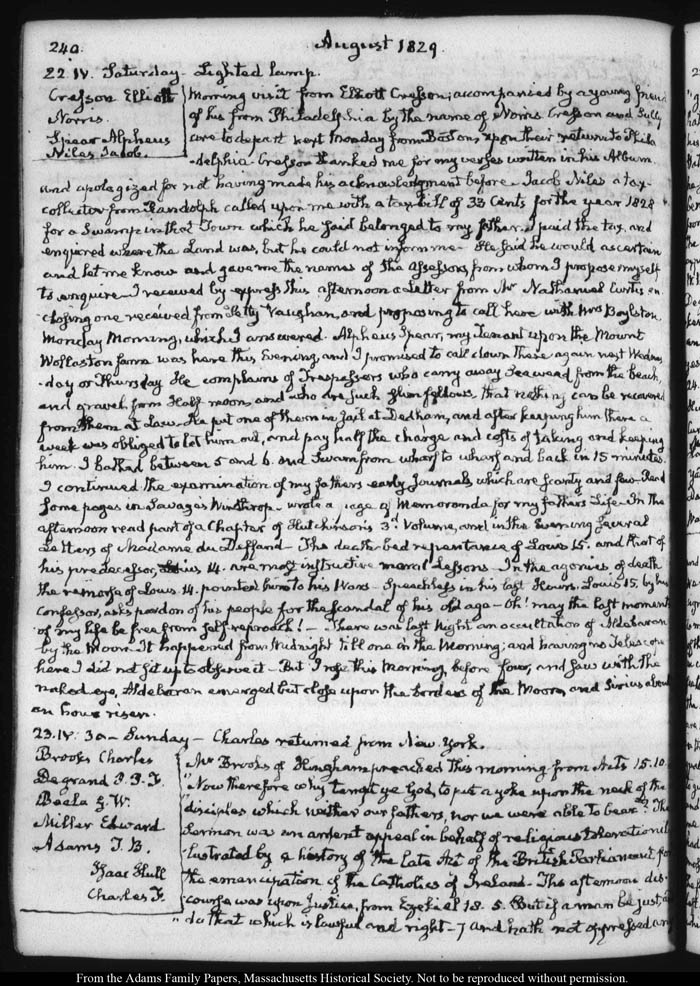 240.
August 1829.
22. IV. Saturday. Lighted lamp.
Cresson Elliott
Norris.
Spear Alpheus
Niles Jacob.
Morning visit from Elliott Cresson; accompanied by a young friend
of his from Philadelphia by the name of Norris. Cresson and Sully
are to depart next Monday from Boston, upon their return to Phila
-delphia. Cresson thanked me for my verses written in his Album,
and apologized for not having made his acknowledgment before. Jacob Niles a tax-
collector from Randolph called upon me with a tax bill of 33 Cents for the year 1828
for a Swamp in that Town which he said belonged to my father. I paid the tax, and
enquired where the Land was, but he could not inform me. He said he would ascertain
and let me know and gave me the names of the Assessors from whom I propose myself
to enquire. I received by express this afternoon a Letter from Mr Nathaniel Curtis en
-closing one received from Petty Vaughan, and proposing to call here with Mrs Boylston
Monday Morning, which I answered. Alpheus Spear, my Tenant upon the Mount
Wollaston farm was here this Evening, and I promised to call down there again next Wednes
-day or Thursday. He complains of Trespassers who carry away Seaweed from the beach,
and gravel from Half moon, and who are such slum fellows, that nothing can be recovered
from them at Law. He put one of them in Jail at Dedham, and after keeping him there a
week was obliged to let him out, and pay half the charge and costs of taking and keeping
him. I bathed between 5 and 6. and swam from wharf to wharf and back in 15 minutes.
I continued the examination of my fathers early Journals which are scanty and few. Read
some pages in Savage's Winthrop. wrote a page of Memoranda for my fathers Life. In the
afternoon read part of a Chapter of Hutchinson's 3d. Volume, and in the Evening several
Letters of Madame du Deffand. The death-bed repentance of Louis 15. and that of
his predecessor, Louis 14. are most instructive moral Lessons. In the agonies of death
the remorse of Louis 14. pointed him to his Wars. Speechless in his last Hours, Louis 15. by his
Confessor, asks pardon of his people for the scandal of his old age. Oh! may the last moments
of my life be free from self-reproach! — There was last Night an occultation of Aldebaran
by the Moon. It happened from Midnight till one in the Morning; and having no Telescope
here I did not sit up to observe it. But I rose this Morning, before four, and saw with the
naked eye, Aldebaran emerged but close upon the borders of the Moon, and Sirius about
an hour risen.
23. IV. 30. Sunday. Charles returned from New York.
Brooks Charles
Degrand P. P. F.
Beale G. W.
Miller Edward
Adams T. B.
Isaac Hull
Charles F.
Mr Brooks of Hingham preached this morning from Acts 15. 10.
"Now therefore why tempt ye God, to put a yoke upon the neck of the
"disciples, which neither our fathers, nor we were able to bear"? The
Sermon was an ardent appeal in behalf of religious toleration il
-lustrated by a history of the late Act of the British Parliament for
the emancipation of the Catholics of Ireland. The afternoon dis-
course was upon Justice, from Ezekiel 18. 5. But if a man be just, and
"do that which is lawful and right—7 and hath not oppressed any
From the Adams Family Papers, Massachusetts Historical Society. Not to be reproduced without permission.